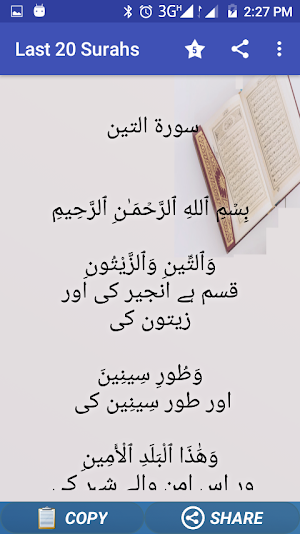 3G H 2:27 PM
Last 20 Surahs 5
سورة التين
بِسْمِ ٱللهِ ٱلرَّحْمَـٰنِ ٱلرَّحِيمِ
وَٱلتِّينِ وَٱلزَّيْتُونِ
قسم ہے انجیر کی اور
زیتون کی
وَطُورِ سِينِينَ
اور طور سِینِین کی
وَهَٰذَا ٱلْبَلَدِ ٱلْأَمِينِ
ور اس امن والے شہر کی
COPY SHARE